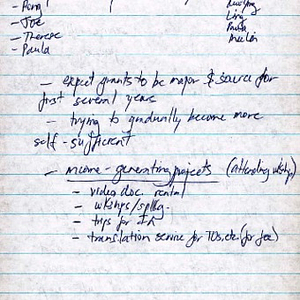 - Rong
- Joe
- Therese
- Paula
Ling
- expect grants to be major $ source for
first several years
- trying to gradually become more
self-sufficient
- income-generating projects (attending wkshp)
- video doc. rental
- wkshps/spkg.
- trips for
- translation service for TOs, etc. (for fee)